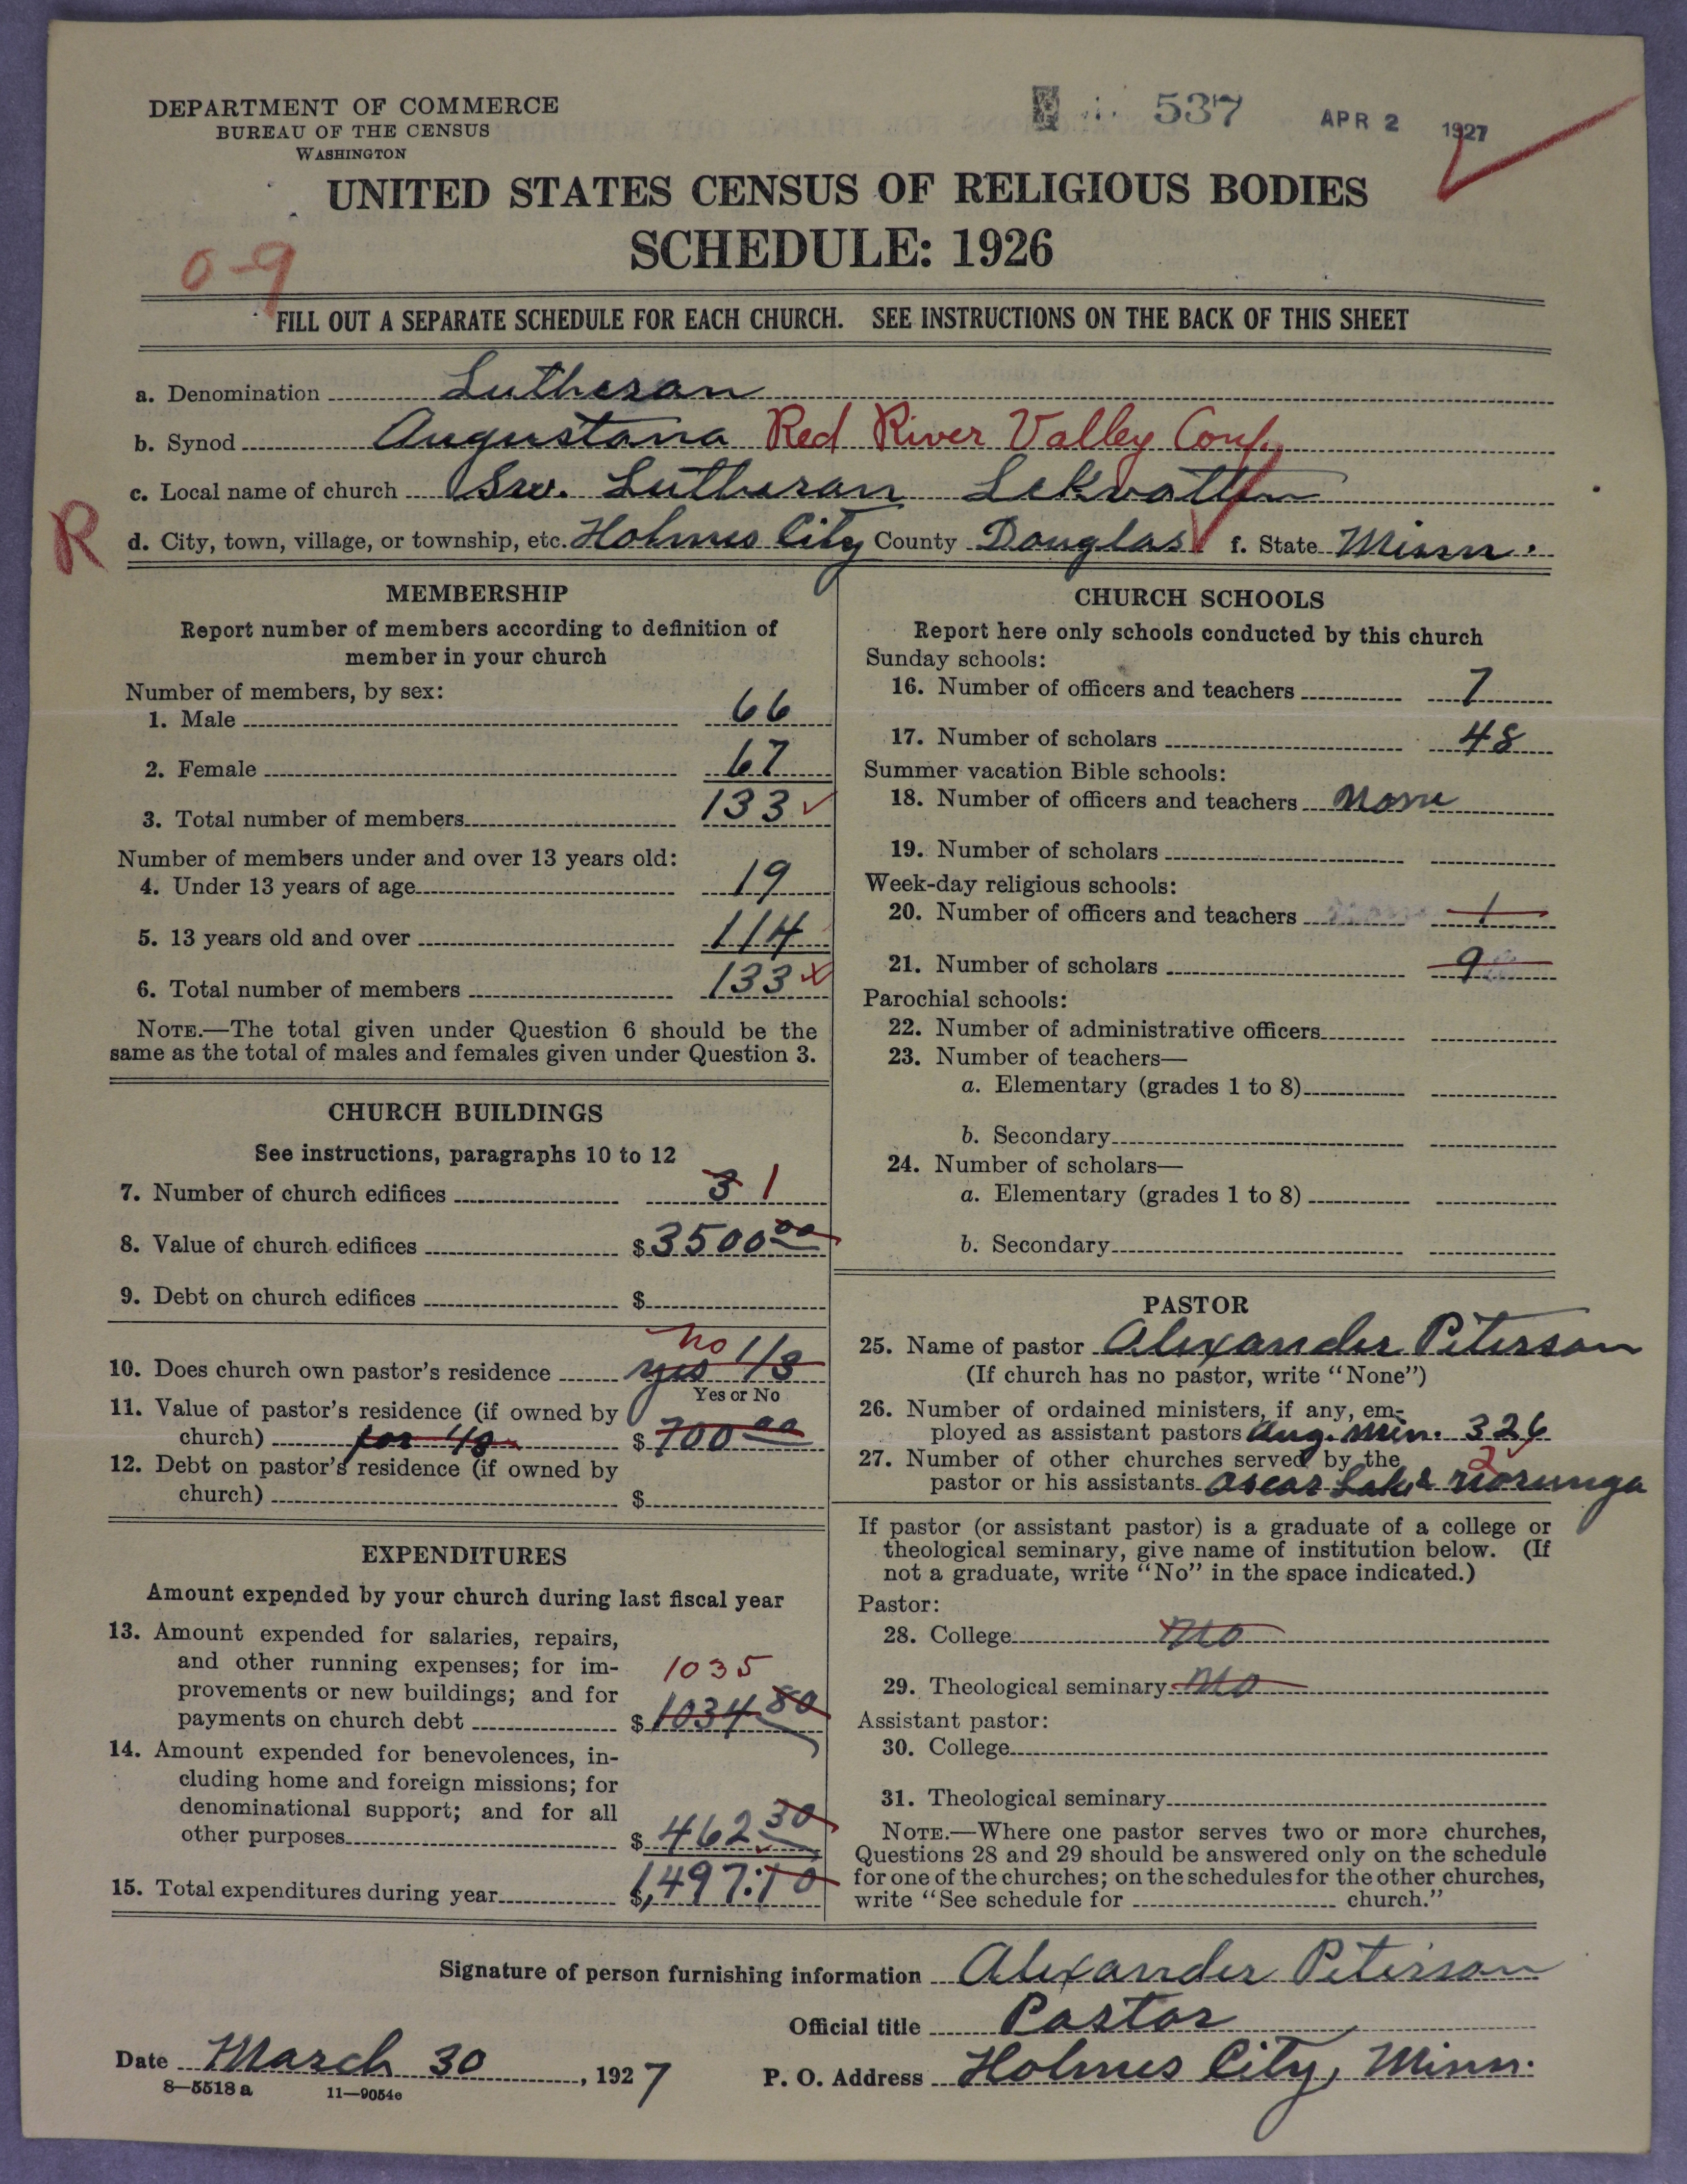 DEPARTMENT OF COMMERCE
BUREAU OF THE CENSUS
WASHINGTON
537 APR 2 1927
UNITED STATES CENSUS OF RELIGIOUS BODIES
SCHEDULE: 1926
0-9
FILL OUT A SEPARATE SCHEDULE FOR EACH CHURCH. SEE INSTRUCTIONS ON THE BACK OF THIS SHEET
a. Denomination Lutheran
b. Synod Augustana Red River Valley Conf.
c. Local name of church Sw. Lutheran
R
d. City, town, village, or township, etc. Holmes City County Douglas f. State Minn.
MEMBERSHIP
Report number of members according to definition of
member in your church
Number of members, by sex:
1. Male 66
2. Female 67
3. Total number of members 133
Number of members under and over 13 years old:
4. Under 13 years of age 19
5. 13 years old and over 114
6. Total number of members 133
NOTE.—The total given under Question 6 should be the
same as the total of males and females given under Question 3.
CHURCH BUILDINGS
See instructions, paragraphs 10 to 12
7. Number of church edifices 3 1
8. Value of church edifices $3500 00
9. Debt on church edifices $
no
10. Does church own pastor's residence yes 1/3
Yes or No
11. Value of pastor's residence (if owned by
church) for 1/3 $700 00
12. Debt on pastor's residence (if owned by
church) $
EXPENDITURES
Amount expended by your church during last fiscal year
13. Amount expended for salaries, repairs,
and other running expenses; for im-
1035
provements or new buildings; and for
payments on church debt $1034 80
14. Amount expended for benevolences, in-
cluding home and foreign missions; for
denominational support; and for all
other purposes $462 30
15. Total expenditures during year $1,497.10
CHURCH SCHOOLS
Report here only schools conducted by this church
Sunday schools:
16. Number of officers and teachers 7
17. Number of scholars 48
Summer vacation Bible schools:
18. Number of officers and teachers None
19. Number of scholars
Week-day religious schools:
20. Number of officers and teachers 1
21. Number of scholars 9
Parochial schools:
22. Number of administrative officers
23. Number of teachers—
a. Elementary (grades 1 to 8)
b. Secondary
24. Number of scholars—
a. Elementary (grades 1 to 8)
b. Secondary
PASTOR
25. Name of pastor Alexander Peterson
(If church has no pastor, write "None")
26. Number of ordained ministers, if any, em-
ployed as assistant pastors Aug. Min. 326
27. Number of other churches served by the
2
pastor or his assistants Oscar Lake
If pastor (or assistant pastor) is a graduate of a college or
theological seminary, give name of institution below. (If
not a graduate, write "No" in the space indicated.)
Pastor:
28. College No
29. Theological seminary No
Assistant pastor:
30. College
31. Theological seminary
NOTE.—Where one pastor serves two or more churches,
Questions 28 and 29 should be answered only on the schedule
for one of the churches; on the schedules for the other churches,
write "See schedule for church."
Signature of person furnishing information Alexander Peterson
Official title Pastor
Date March 30, 1927 P. O. Address Holmes City, Minn.
8—5518 a 11—9054e